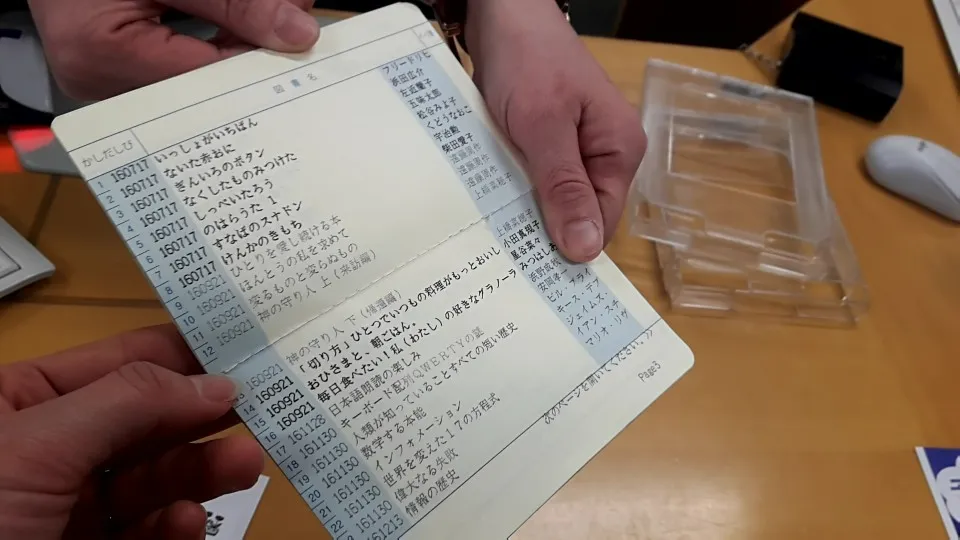 かしだしび 図書名
1 160717 いっしょがいちばん フリードリヒ
2 160717 ないた赤おに 浜田広介
3 160717 ぎんいろのボタン 左近蘭子
4 160717 なくしたものみつけた 五味太郎
5 160717 しっぺいたろう
6 160717 のはらうた 1 くどうなおこ
7 160717 すなばのスナドン 宇治勲
8 160717 けんかのきもち 柴田愛子
9 160921 ひとりを愛し続ける本 遠藤周作
10 160921 ほんとうの私を求めて 遠藤周作
11 160921 変るものと変らぬもの 遠藤周作
12 160921 神の守り人 上(来訪編) 上橋菜穂子
160921 神の守り人 下(帰還編) 上橋菜穂子
14 160921 「切り方」ひとつでいつもの料理がもっとおいし 小田真規子
15 160921 おひさまと、朝ごはん。 星谷菜々
16 160921 毎日食べたい!私(わたし)の好きなグラノーラ みつはしあ
17 161128 日本語朗読の楽しみ
18 161130 キーボード配列QWERTYの謎 安岡孝一
19 161130 人類が知っていることすべての短い歴史 ビル・ブライ
20 161130 数学する本能 キース・デブ
21 161130 インフォメーション ジェイムズ・
22 161130 世界を変えた17の方程式 イアン・スチ
161130 偉大なる失敗 マリオ・リヴ
161213 情報の歴史
次のページを開いてください。>>
Page3